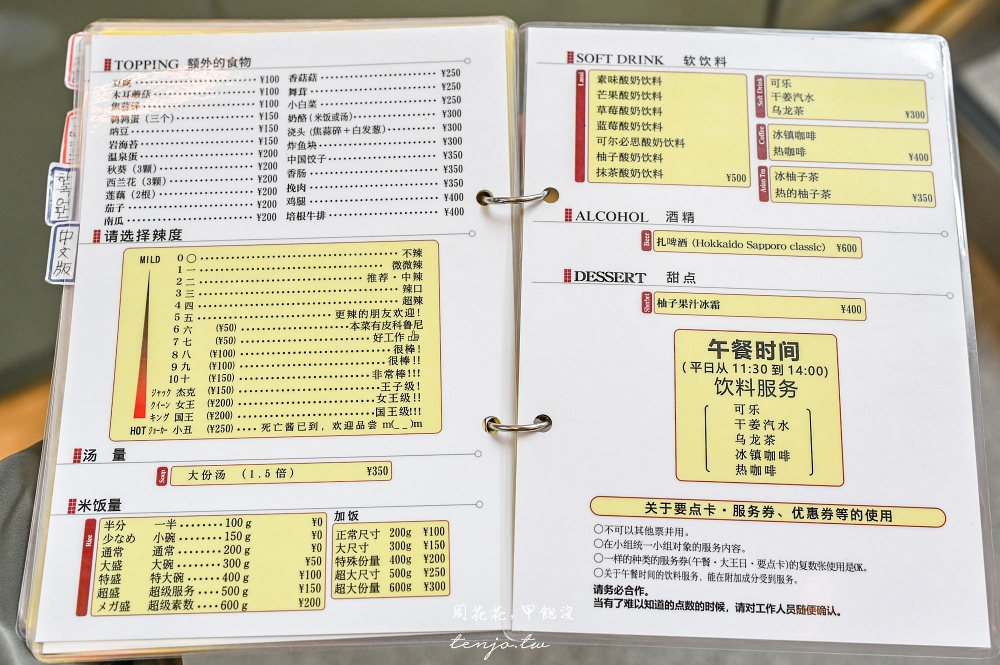 TOPPING 额外的食物
豆腐 ¥100
木耳蘑菇 ¥100
焦蒜碎 ¥100
鹌鹑蛋（三个） ¥150
纳豆 ¥150
岩海苔 ¥200
温泉蛋 ¥200
秋葵（3颗） ¥200
西兰花（3颗） ¥200
莲藕（2根） ¥200
茄子 ¥200
南瓜 ¥200
香菇菇 ¥250
舞茸 ¥250
小白菜 ¥250
奶酪（米饭或汤） ¥300
浇头（焦蒜碎＋白发葱） ¥300
炸鱼块 ¥300
中国饺子 ¥350
香肠 ¥350
挽肉 ¥350
鸡腿 ¥400
培根牛排 ¥400
请选择辣度
MILD
0 〇 不辣
1 一 微微辣
2 二 推荐・中辣
3 三 辣口
4 四 超辣
5 五 更辣的朋友欢迎!
6 六 (¥50) 本菜有皮科鲁尼
7 七 (¥50) 好工作
8 八 (¥100) 很棒!
9 九 (¥100) 很棒!!
10 十 (¥150) 非常棒!!!
ジャック 杰克 (¥150) 王子级!
クイーン 女王 (¥200) 女王级!!
キング 国王 (¥200) 国王级!!!
HOT ジョーカー 小丑 (¥250) 死亡酱已到，欢迎品尝 m(__)m
汤 量
Soup 大份汤 （1.5 倍） ¥350
米饭量
Rice
半分 一半 100g ¥0
少なめ 小碗 150g ¥0
通常 通常 200g ¥0
大盛 大碗 300g ¥50
特盛 特大碗 400g ¥100
超盛 超级服务 500g ¥150
メガ盛 超级素数 600g ¥200
加饭
正常尺寸 200g ¥100
大尺寸 300g ¥150
特殊份量 400g ¥200
超大尺寸 500g ¥250
超大份量 600g ¥300
SOFT DRINK 软饮料
Lassi
素味酸奶饮料
芒果酸奶饮料
草莓酸奶饮料
蓝莓酸奶饮料
可尔必思酸奶饮料
柚子酸奶饮料
抹茶酸奶饮料 ¥500
Soft Drink
可乐
干姜汽水
乌龙茶 ¥300
Coffee
冰镇咖啡
热咖啡 ¥400
Asian Tea
冰柚子茶
热的柚子茶 ¥350
ALCOHOL 酒精
Beer 扎啤酒（Hokkaido Sapporo classic） ¥600
DESSERT 甜点
Sherbet 柚子果汁冰霜 ¥400
午餐时间
(平日从 11:30 到 14:00)
饮料服务
可乐
干姜汽水
乌龙茶
冰镇咖啡
热咖啡
关于要点卡・服务券、优惠券等的使用
〇不可以其他票并用。
〇在小组统一小组对象的服务内容。
〇一样的种类的服务券(午餐・大王日・要点卡)的复数张使用是OK。
〇关于午餐时间的饮料服务，能在附加成分受到服务。
请务必合作。
当有了难以知道的点数的时候，请对工作人员随便确认。
한국어판
中文版
周花花，甲飽沒
tenjo.tw